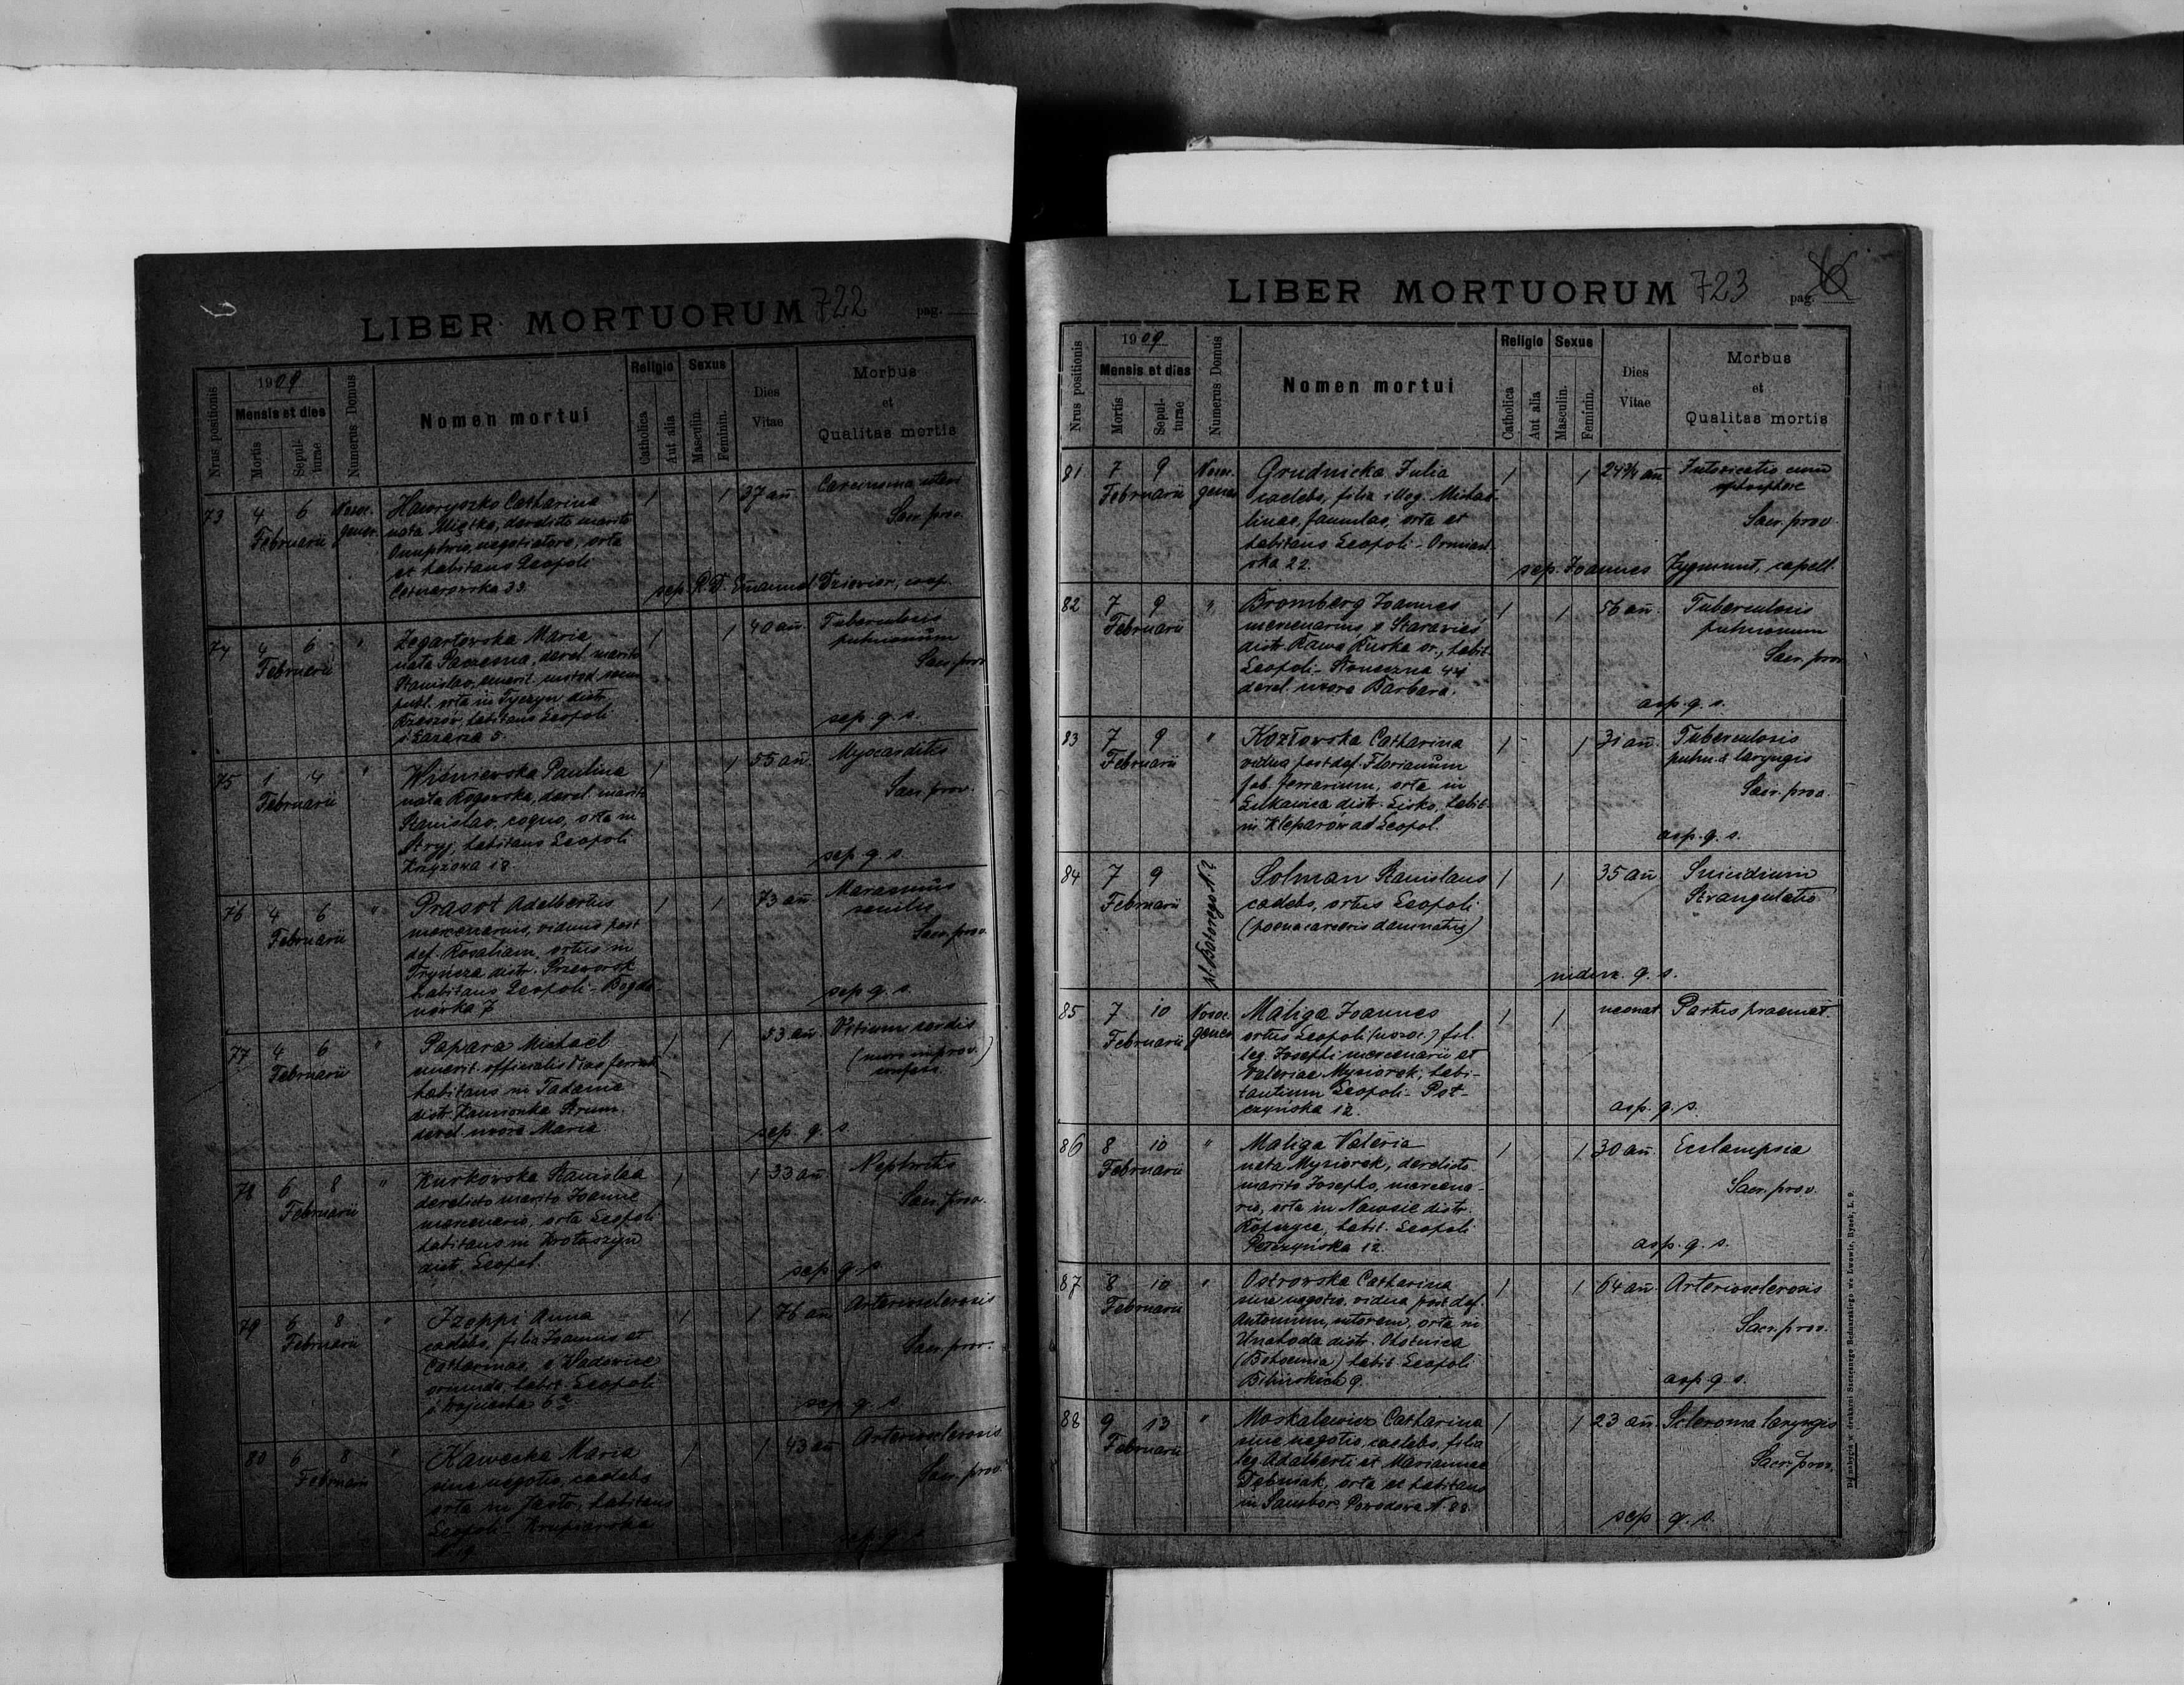 LIBER MORTUORUM 722 pag.
Nrus positionis
1909
Mensis et dies
Mortis
Sepul-
turae
Numerus Domus
Nomen mortui
Religio
Catholica
Aut alia
Sexus
Masculin.
Feminin.
Dies
Vitae
Morbus
et
Qualitas mortis
73 4 6 Nosoc. Hawryszko Catharina 1 1 37 añ. Carcinoma uteri
Februarii gener. nata derelicto marito Sacr. prov.
Onuphrio, negotiatore, orta
et habitans Leopoli
33 sep. R. D. Emanuel Dziewior, coop.
74 4 6 " Zegartowska Maria 1 1 40 añ. Tuberculosis
Februarii nata Paczesna, derel. marito pulmonum
Stanislao, emerit. custod. Sacr. prov
publ. orta in Tyczyn distr.
Rzeszów, habitans Leopoli sep. q. s.
s. Łazarza 5.
75 1 4 " Wiśniewska Paulina 1 1 55 añ. Myocarditis
Februarii nata derel. marito Sacr. prov.
Stanislao, orta in
Stryj, habitans Leopoli
Krzyżowa 18. sep. q. s.
76 4 6 " Prasoł Adalbertus 1 1 73 añ. Marasmus
Februarii mercenarius, viduus post senilis
def. Rosaliam, ortus in Sacr. prov.
Tryńcza distr. Przeworsk
habitans Leopoli - Bogda-
nówka 7 sep. q. s.
77 4 6 " Papara Michaël 1 1 53 añ. Vitium cordis
Februarii emerit. officialis viae ferrat. (mors improv.)
habitans in Tadanie
distr. Kamionka Strum.
derel. uxore Maria. sep. q. s
78 6 8 " Kurkowska Stanislaa 1 1 33 añ. Nephritis
Februarii derelicto marito Joanne Sacr. prov.
mercenario, orta Leopoli
habitans in Krotoszyn
distr. Leopol. sep. q. s.
79 6 8 " Izeppi Anna 1 1 76 añ Arteriosclerosis
Februarii caelebs, filia Joannis et Sacr. prov.
Catharinae, e Wadowice
oriunda, habit. Leopoli
s. Wojciecha 6a sep. q. s.
80 6 8 " Kawecka Maria 1 1 43 añ Arteriosclerosis
Februarii sine negotio, caelebs Sacr. prov.
orta in Jasło, habitans
Leopoli - Krupiarska
N. 19 sep. q. s.
LIBER MORTUORUM 723 pag.
Nrus positionis
1909
Mensis et dies
Mortis
Sepul-
turae
Numerus Domus
Nomen mortui
Religio
Catholica
Aut alia
Sexus
Masculin.
Feminin.
Dies
Vitae
Morbus
et
Qualitas mortis
81 7 9 Nosoc. Grudnicka Julia 1 1 24 3/4 añ Intoxicatio cum
Februarii gener. caelebs, filia illeg. Michae-
linae, famulae, orta et Sacr. prov.
habitans Leopoli - Ormiań-
ska 22. sep. Joannes Zygmunt, capell.
82 7 9 " Bromberg Joannes 1 1 56 añ. Tuberculosis
Februarii mercenarius, e Starawieś pulmonum
distr. Rawa Ruska or., habit. Sacr. prov
Leopoli - Słoneczna 44
derel. uxore Barbara. asp. q. s.
83 7 9 " Kozłowska Catharina 1 1 31 añ. Tuberculosis
Februarii vidua post def. Florianum pulm. & laryngis
fab. ferrarium, orta in Sacr. prov.
Łukawica distr. Lisko, habit.
in Kleparów ad Leopol. asp. q. s.
84 7 9 pl. Batorego N. 2 Solman Stanislaus 1 1 35 añ Suicidium
Februarii caelebs, ortus Leopoli Strangulatio
(poena carceris damnatus)
q. s.
85 7 10 Nosoc. Maliga Joannes 1 1 neonat Partus praemat.
Februarii gener. ortus Leopoli (nosoc.) fil.
leg. Josephi mercenarii et
Valeriae Mysiorek, habi-
tantium Leopoli - Peł-
czyńska 12. asp. q. s.
86 8 10 " Maliga Valeria 1 1 30 añ. Eclampsia
Februarii nata Mysiorek, derelicto
marito Josepho, mercena- Sacr. prov.
rio, orta in Nawsie distr.
Ropczyce, habit. Leopoli
Pełczyńska 12. asp. q. s.
87 8 10 " Ostrowska Catharina 1 1 64 añ. Arteriosclerosis
Februarii sine negotio, vidua post def.
Antonium, sutorem, orta in Sacr. prov.
Unahoda distr.
(Bohoemia) habit. Leopoli
Bilińskich 9. asp. q. s.
88 9 13 " Moskalewicz Catharina 1 1 23 añ. Scleroma laryngis
Februarii sine negotio, caelebs, filia
leg. Adalberti et Mariannae Sacr. prov.
Dębniak, orta et habitans
in Sambor. Powodowa N. 88. sep. q. s.
Do nabycia w drukarni Szczęsnego Bednarskiego we Lwowie, Rynek, L. 9.